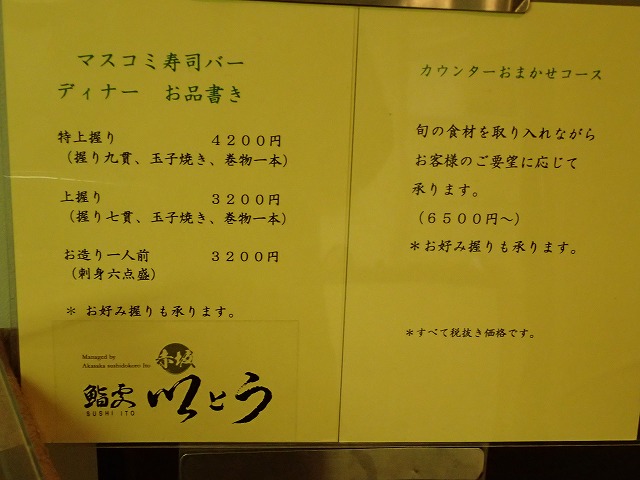 マスコミ寿司バー
ディナー　お品書き
特上握り　４２００円
（握り九貫、玉子焼き、巻物一本）
上握り　３２００円
（握り七貫、玉子焼き、巻物一本）
お造り一人前　３２００円
（刺身六点盛）
＊ お好み握りも承ります。
Managed by
Akasaka sushidokoro Ito
赤坂
鮨処 いとう
SUSHI ITO
カウンターおまかせコース
旬の食材を取り入れながら
お客様のご要望に応じて
承ります。
（６５００円～）
＊お好み握りも承ります。
＊すべて税抜き価格です。